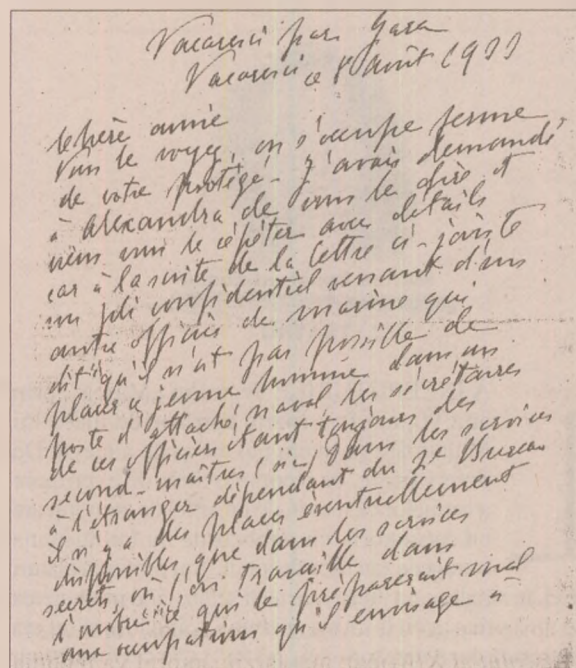 Vacaresci par Gara
Vacaresci ce 8 août 1933
chère amie
Vous le voyez, on s'occupe ferme
de votre protégé - j'avais demandé
à Alexandra de vous le dire et
viens vous le répéter avec détails
car à la suite de la lettre ci-jointe
un pli confidentiel venant d'un
autre officier de marine qui
dit "qu'il n'est pas possible de
placer ce jeune homme dans un
poste d'attaché naval les secrétaires
de ces officiers étant toujours des
second-maîtres (sic) Dans les services
à l'étranger dépendant du 2e Bureau
il n'y a des places éventuellement
disponibles que dans les services
secrets où l'on travaille dans
qui le préparerait mal
aux occupations qu'il envisage à